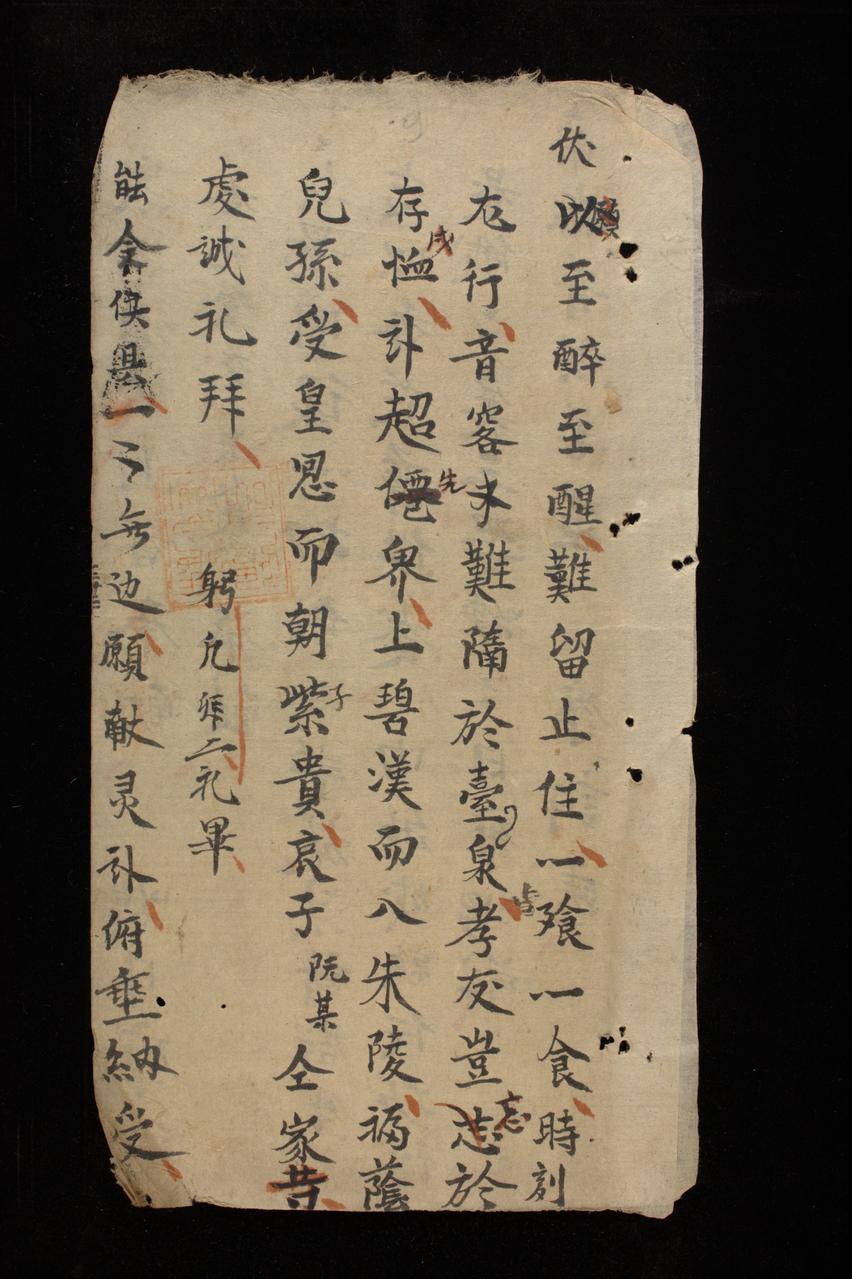 伏以願至醉至醒難留止住一飧一食時刻
左行音容才難隋於臺泉孝友豈志忘於
存恤戌訃超僊先界上碧漢而八朱陵福蔭
兒孫受皇恩而朝紫子貴哀子阮某仝家昔
虔誠礼拜躬九拜二礼畢
能令供具一了無边願献灵訃俯垂納受